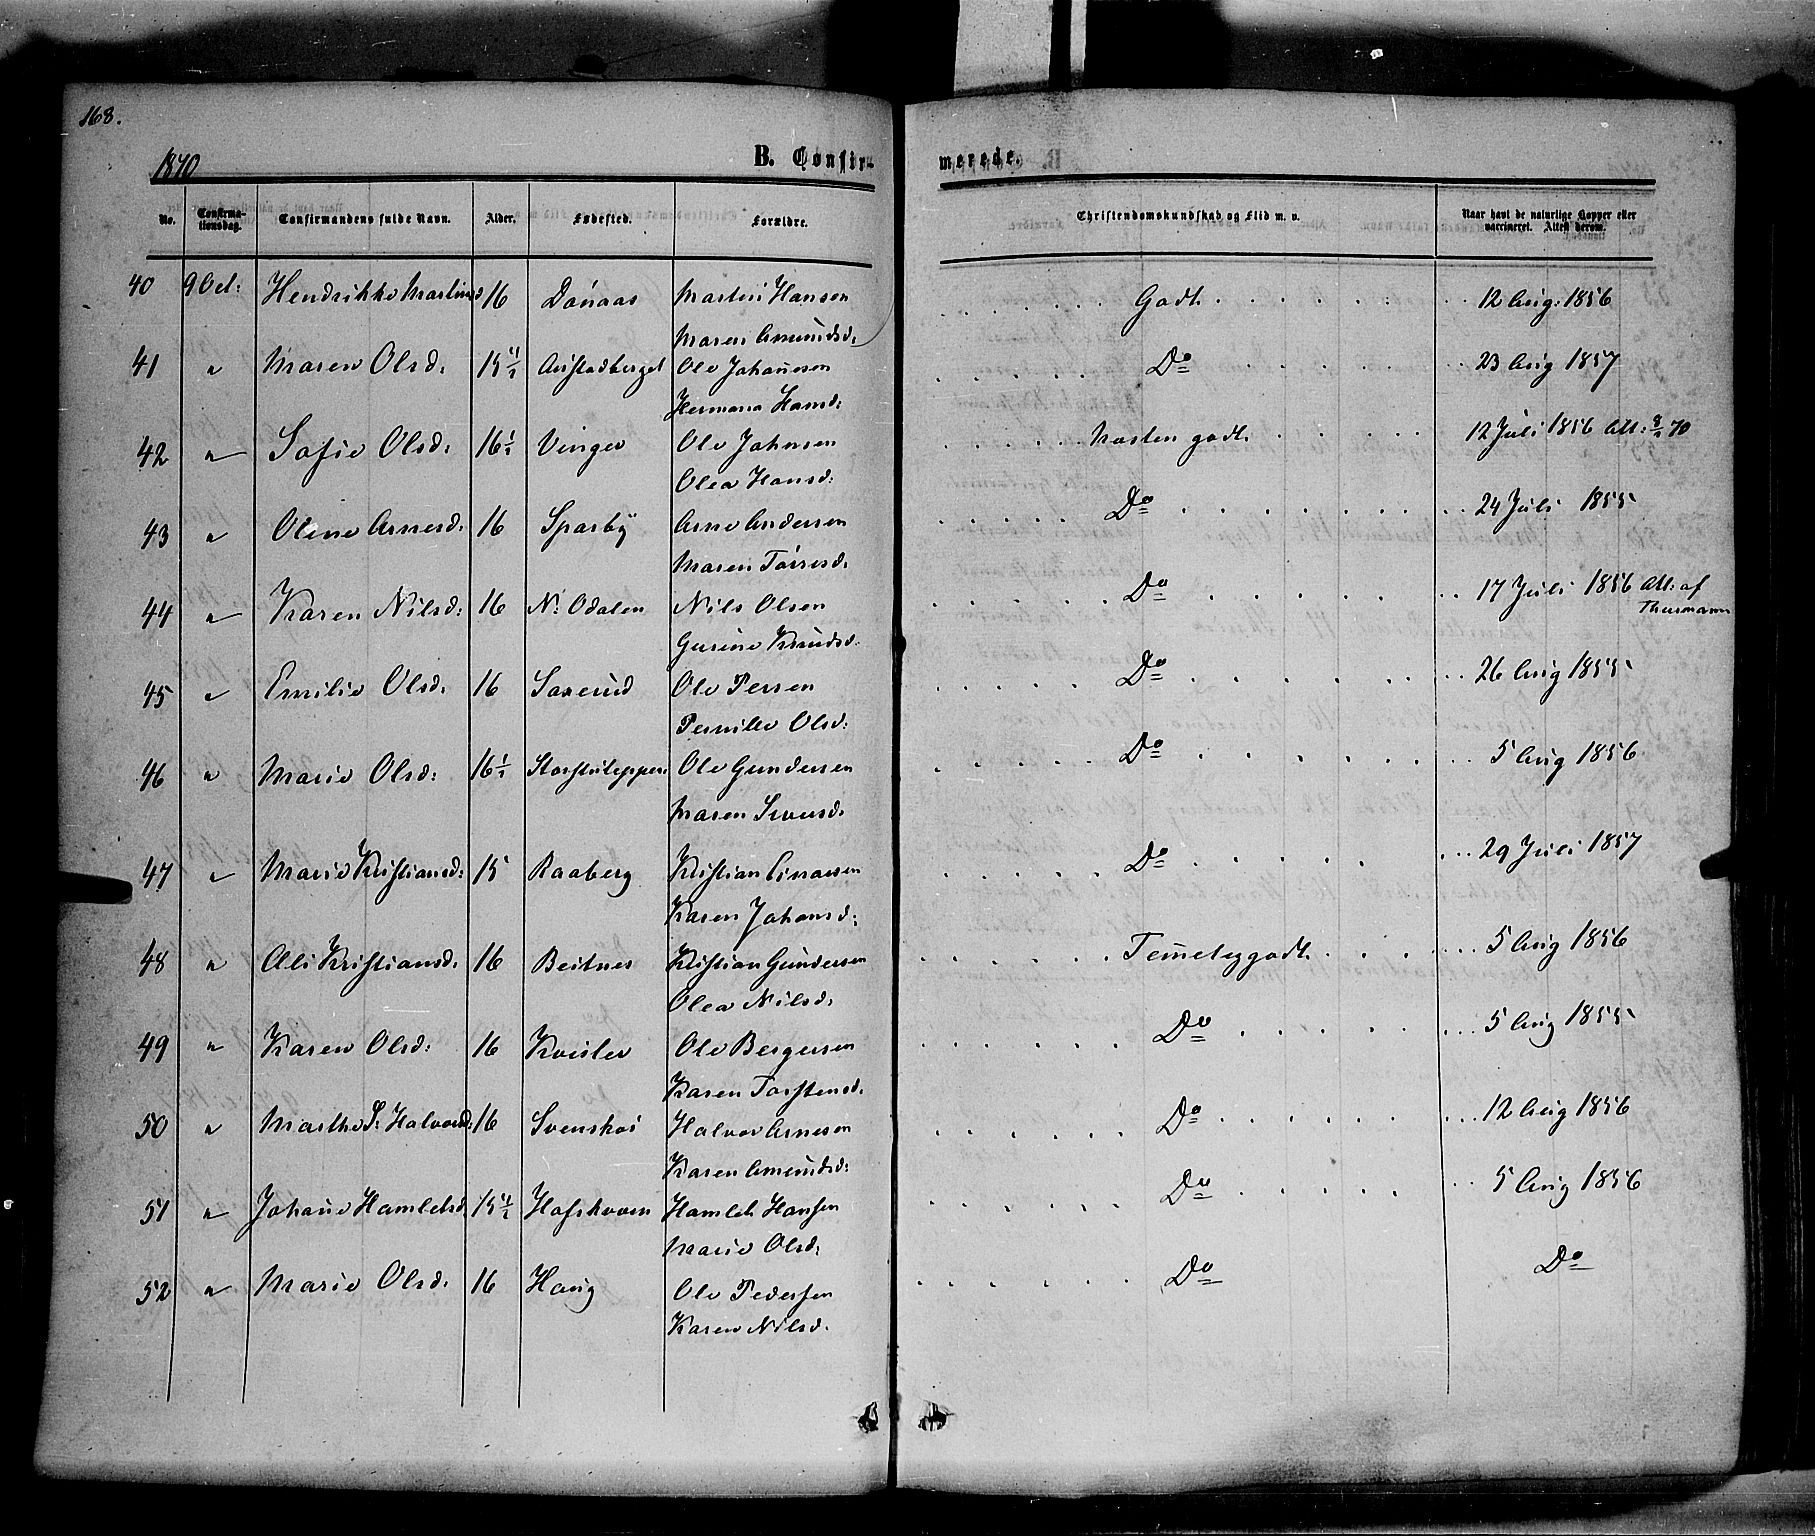 168.
1870
B. Confirmerede.
No. Confirmationsdag. Confirmandens fulde Navn. Alder. Fødested. Forældre. Christendomskundskab og Flid m. v. Naar havt de naturlige Kopper eller vaccineret. Attest derom.
40 9 Oct: Hendrikke Martinsd 16 Martin Hansen Godt 12 Aug: 1856
Maren Amundsd.
41 " Maren Olsd. 15 1/2 Austadberget Ole Johannesen Do 23 Aug 1857
Hermana Hansd:
42 " Sofie Olsd. 16 1/2 Vinger Ole Johnsen Næsten godt 12 Juli 1856 Att:
Olea Hansd:
43 " Olene Arnesd. 16 Sparby Arne Andersen Do 24 Juli 1855
Maren Torresd.
44 " Karen Nilsd: 16 N: Odalen Nils Olsen Do 17 Juli 1856 Att: af Thurmann
Gurine Knudsd.
45 " Emilie Olsd. 16 Saxerud Ole Persen Do 26 Aug 1855
Pernille Olsd:
46 " Marie Olsd: 16 1/2 Ole Gundersen Do 5 Aug 1856
Maren Siversd.
47 " Marie Kristiansd: 15 Raaberg Kristian Einarsen Do 29 Juli 1857
Karen Johansd:
48 " Oli Kristiansd. 16 Beitnes Kristian Gundersen Temelig godt 5 Aug 1856
Olea Nilsd.
49 " Karen Olsd: 16 Kvisler Ole Bergersen Do 5 Aug 1855
Karen Torstensd.
50 " Marthe S. Halvorsd: 16 Halvor Arnesen Do 12 Aug 1856
Karen Amundsd:
51 " Johane Hamletsd. 15 1/2 Hamlet Hansen Do 5 Aug 1856
Marie Olsd.
52 " Marie Olsd. 16 Haug Ole Pedersen Do Do
Karen Nilsd.